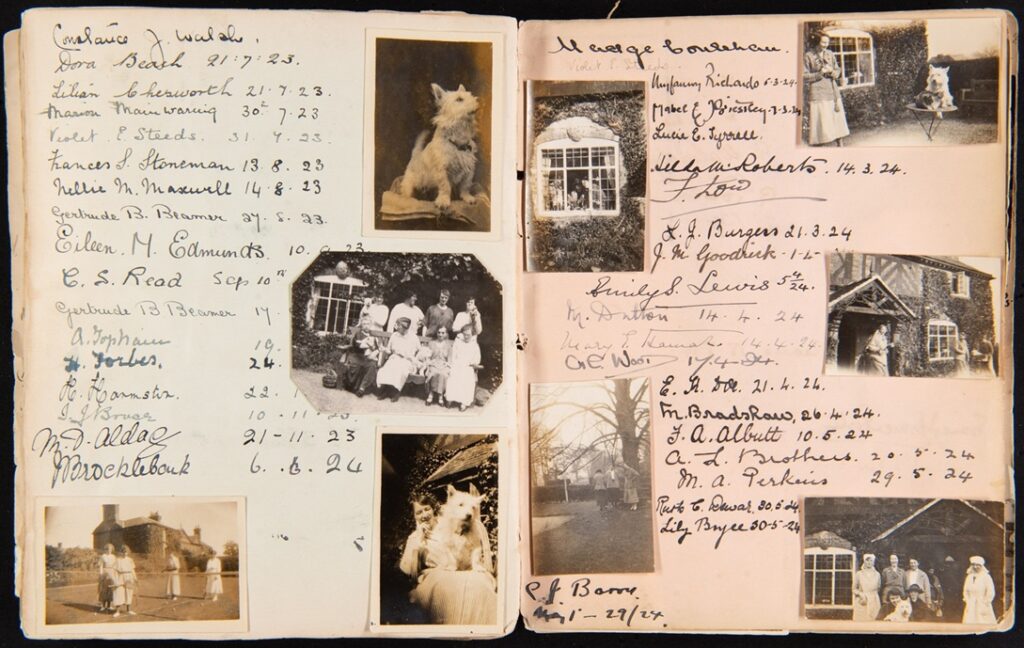 Constance J. Walsh.
Dora Beach 21:7:23.
Lilian Chesworth 21.7.23.
Marion Mainwaring 30th 7.23
Violet E Steeds. 31.7.23.
Frances S. Stoneman 13.8.23
Nellie M. Maxwell 14.8.23
Gertrude B. Beamer 27.8.23.
Eileen. M. Edmunds. 10.9.23
C. S. Read Sep 10th
Gertrude B Beamer 17.
A. Topham 19.
H. Forbes. 24.
22.
10-11-23
M. D. Aldag 21-11-23
Brocklebank 6. 24
Madge
Violet E. Steeds.
Myfanwy Richards 6.3.24.
Mabel E. Priestley
Lucie E. Tyrrell.
Hilda McRoberts. 14.3.24.
F. Low
L. J. Burgess 21.3.24
J. M. Goodrick
Emily S. Lewis 5/4/24.
M. Dutton 14.4.24
Mary E. 14.4.24.
Wood 17.4.24.
21.4.24.
M. Bradshaw, 26.4.24.
F. A. Albutt 10.5.24
A. L. Brothers. 20.5.24
M. A. Perkins 29.5.24
Ruth C. Dewar. 30.5.24
Lily Bryce 30-5-24
29/24.